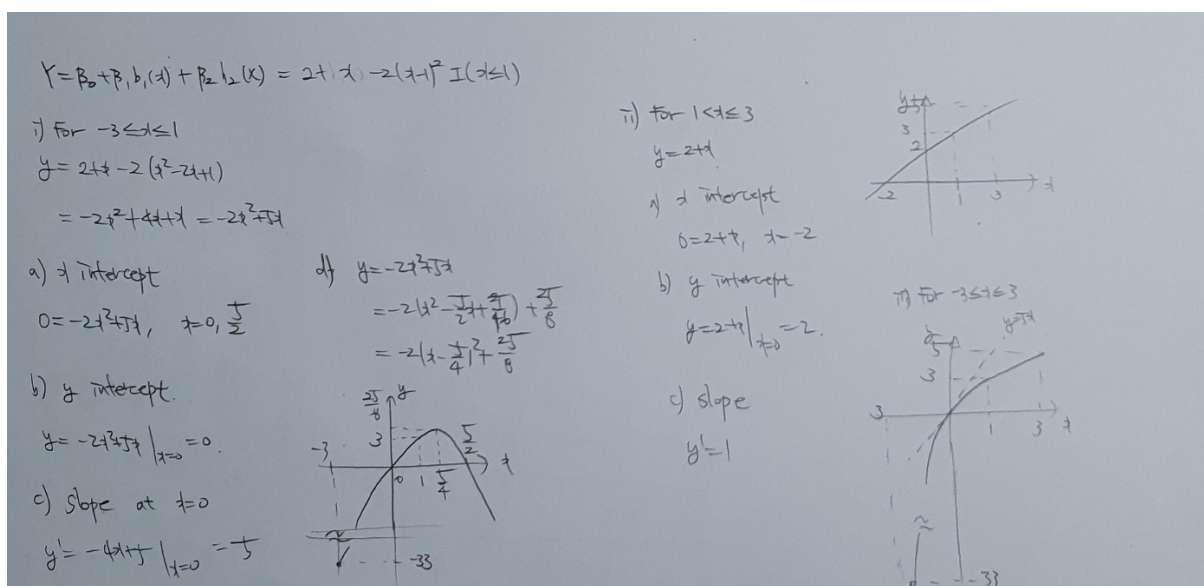 Y = β₀ + β₁b₁(x) + β₂b₂(x) = 2 + x - 2(x-1)² I(x≤1)
i) For -3≤x≤1
y = 2+x - 2(x²-2x+1)
= -2x²+4x+x = -2x²+5x
a) x intercept
0 = -2x²+5x, x=0, 5/2
b) y intercept.
y = -2x²+5x |x=0 = 0.
c) slope at x=0
y' = -4x+5 |x=0 = 5
d) y = -2x²+5x
= -2(x² - 5/2 x + 25/16) + 25/8
= -2(x - 5/4)² + 25/8
y
25/8
3
-3
0 1 5/4 5/2 x
-33
ii) For 1<x≤3
y = 2+x
a) x intercept
0 = 2+x, x = -2
b) y intercept
y = 2+x |x=0 = 2.
c) slope
y' = 1
y
5
3
2
-2 1 3 x
iii) For -3≤x≤3
y=5x
y
5
3
3 1 3 x
-33